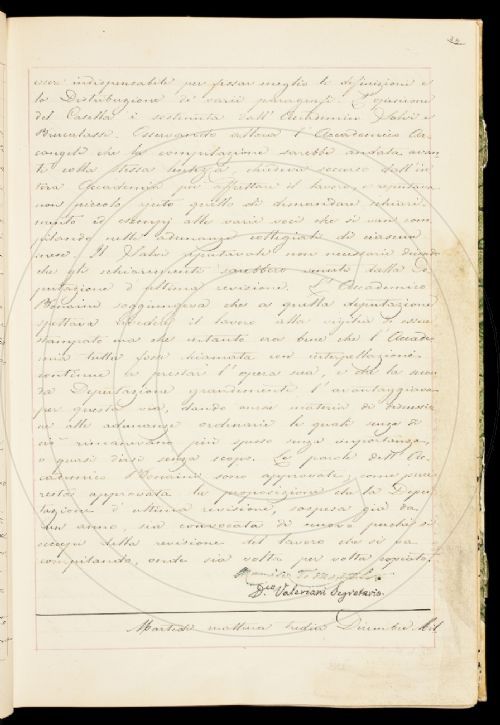 esser indispensabile per fissar meglio le definizioni e
la Distribuzione di varii paragrafi. L'opinione
del Casella è sostenuta dall'Accademico Dalvi e
Brucalassi. Osservando allora l'Accademico Ar-
cangeli che la compilazione sarebbe andata avan-
ti colla stessa lentezza, chiedeva soccorso dall'in-
tera Accademia per affrettare il lavoro, e reputava
non piccolo ajuto quello di dimandare schiari-
mento ed esempj alle varie voci che si van com-
pilando nelle adunanze collegiali di ciascun
mese. Il reputavalo non necessario dicendo
che gli schiarimenti sarebbero venuti dalla De-
putazione d'ultima revisione. L'Accademico
Bonaini soggiungeva che a quella deputazione
spettava rivedere il lavoro alla vigilia di essere
stampato ma che intanto era bene che l'Accade-
mia tutta fosse chiamata con interpellazioni
continue a prestar l'opera sua, e che la secon-
da Deputazione grandemente l'avvantaggiava
per questa via, dando ancora materia di discussio-
ne alle adunanze ordinarie le quali senza di
ciò rimanevano più spesso senza importanza,
o quasi direi senza scopo. Le parole dell'Ac-
cademico Bonaini sono approvate, come pure
restò approvata la proposizione che la Depu-
tazione d'ultima revisione, sospesa già da
un anno, sia convocata di nuovo perchè si
occupi della revisione del lavoro che si va
compilando, onde sia volta per volta
D.co Valeriani Segretario
Martedì mattina tredici Dicembre Mil